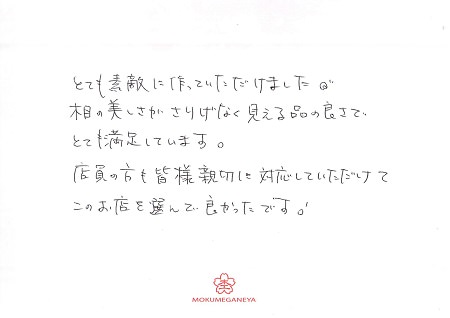 とても素敵に作っていただけました。
相の美しさがさりげなく見える品の良さで
とても満足しています。
店員の方も皆様親切に対応していただけて
このお店を選んで良かったです。
杢
MOKUMEGANEYA